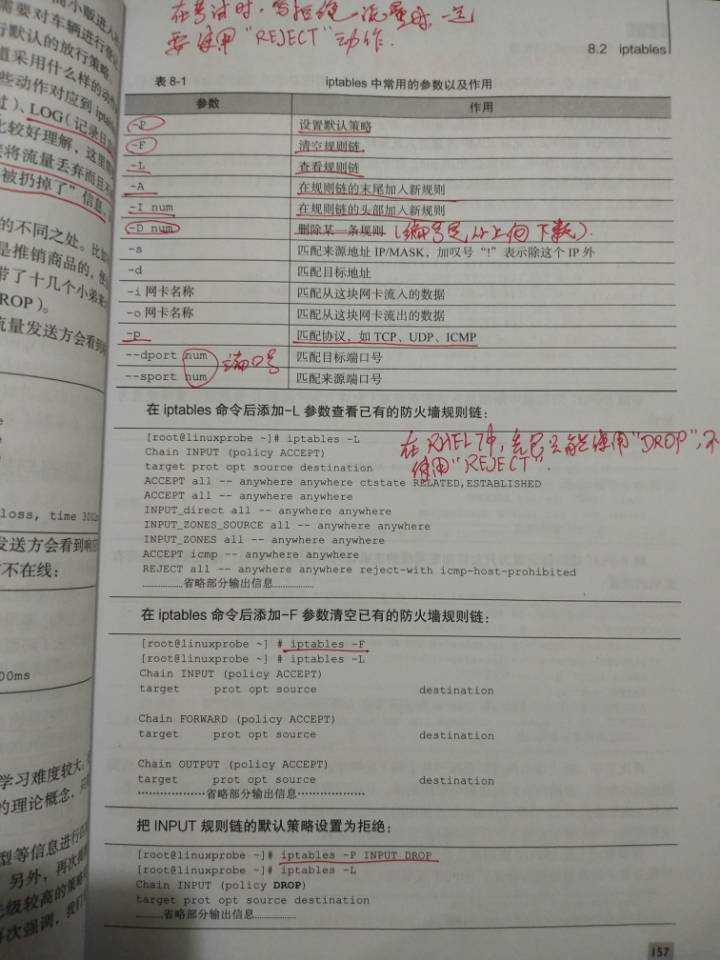 在考试时,写拒绝流量时一定
要使用"REJECT"动作.
8.2 iptables
表 8-1 iptables 中常用的参数以及作用
参数 作用
-P 设置默认策略
-F 清空规则链
-L 查看规则链
-A 在规则链的末尾加入新规则
-I num 在规则链的头部加入新规则
-D num 删除某一条规则 (编号是从上向下数).
-s 匹配来源地址 IP/MASK,加叹号“!”表示除这个 IP 外
-d 匹配目标地址
-i 网卡名称 匹配从这块网卡流入的数据
-o 网卡名称 匹配从这块网卡流出的数据
-p 匹配协议,如 TCP、UDP、ICMP
--dport num 端口号 匹配目标端口号
--sport num 匹配来源端口号
在 iptables 命令后添加-L 参数查看已有的防火墙规则链:
[root@linuxprobe ~]# iptables -L
在RHEL7中,只能使用"DROP",不
使用"REJECT".
Chain INPUT (policy ACCEPT)
target prot opt source destination
ACCEPT all -- anywhere anywhere ctstate RELATED,ESTABLISHED
ACCEPT all -- anywhere anywhere
INPUT_direct all -- anywhere anywhere
INPUT_ZONES_SOURCE all -- anywhere anywhere
INPUT_ZONES all -- anywhere anywhere
ACCEPT icmp -- anywhere anywhere
REJECT all -- anywhere anywhere reject-with icmp-host-prohibited
………………省略部分输出信息………………
在 iptables 命令后添加-F 参数清空已有的防火墙规则链:
[root@linuxprobe ~] # iptables -F
[root@linuxprobe ~] # iptables -L
Chain INPUT (policy ACCEPT)
target prot opt source destination
Chain FORWARD (policy ACCEPT)
target prot opt source destination
Chain OUTPUT (policy ACCEPT)
target prot opt source destination
………………省略部分输出信息………………
把 INPUT 规则链的默认策略设置为拒绝:
[root@linuxprobe ~]# iptables -P INPUT DROP
[root@linuxprobe ~]# iptables -L
Chain INPUT (policy DROP)
target prot opt source destination
…………省略部分输出信息………………
157
小贩进入
需要对车辆进行
行默认的放行策略
道采用什么样的动作
些动作对应到 ipta
过)、LOG(记录日
比较好理解,这里
将流量丢弃而且不
被扔掉了”信息
的不同之处。比如
是推销商品的,
带了十几个小弟来
ROP)。
流量发送方会看到
loss, time 3002
发送方会看到响应
不在线:
00ms
学习难度较大,
的理论概念,只
型等信息进行
另外,再次
级较高的策略
再次强调,我们